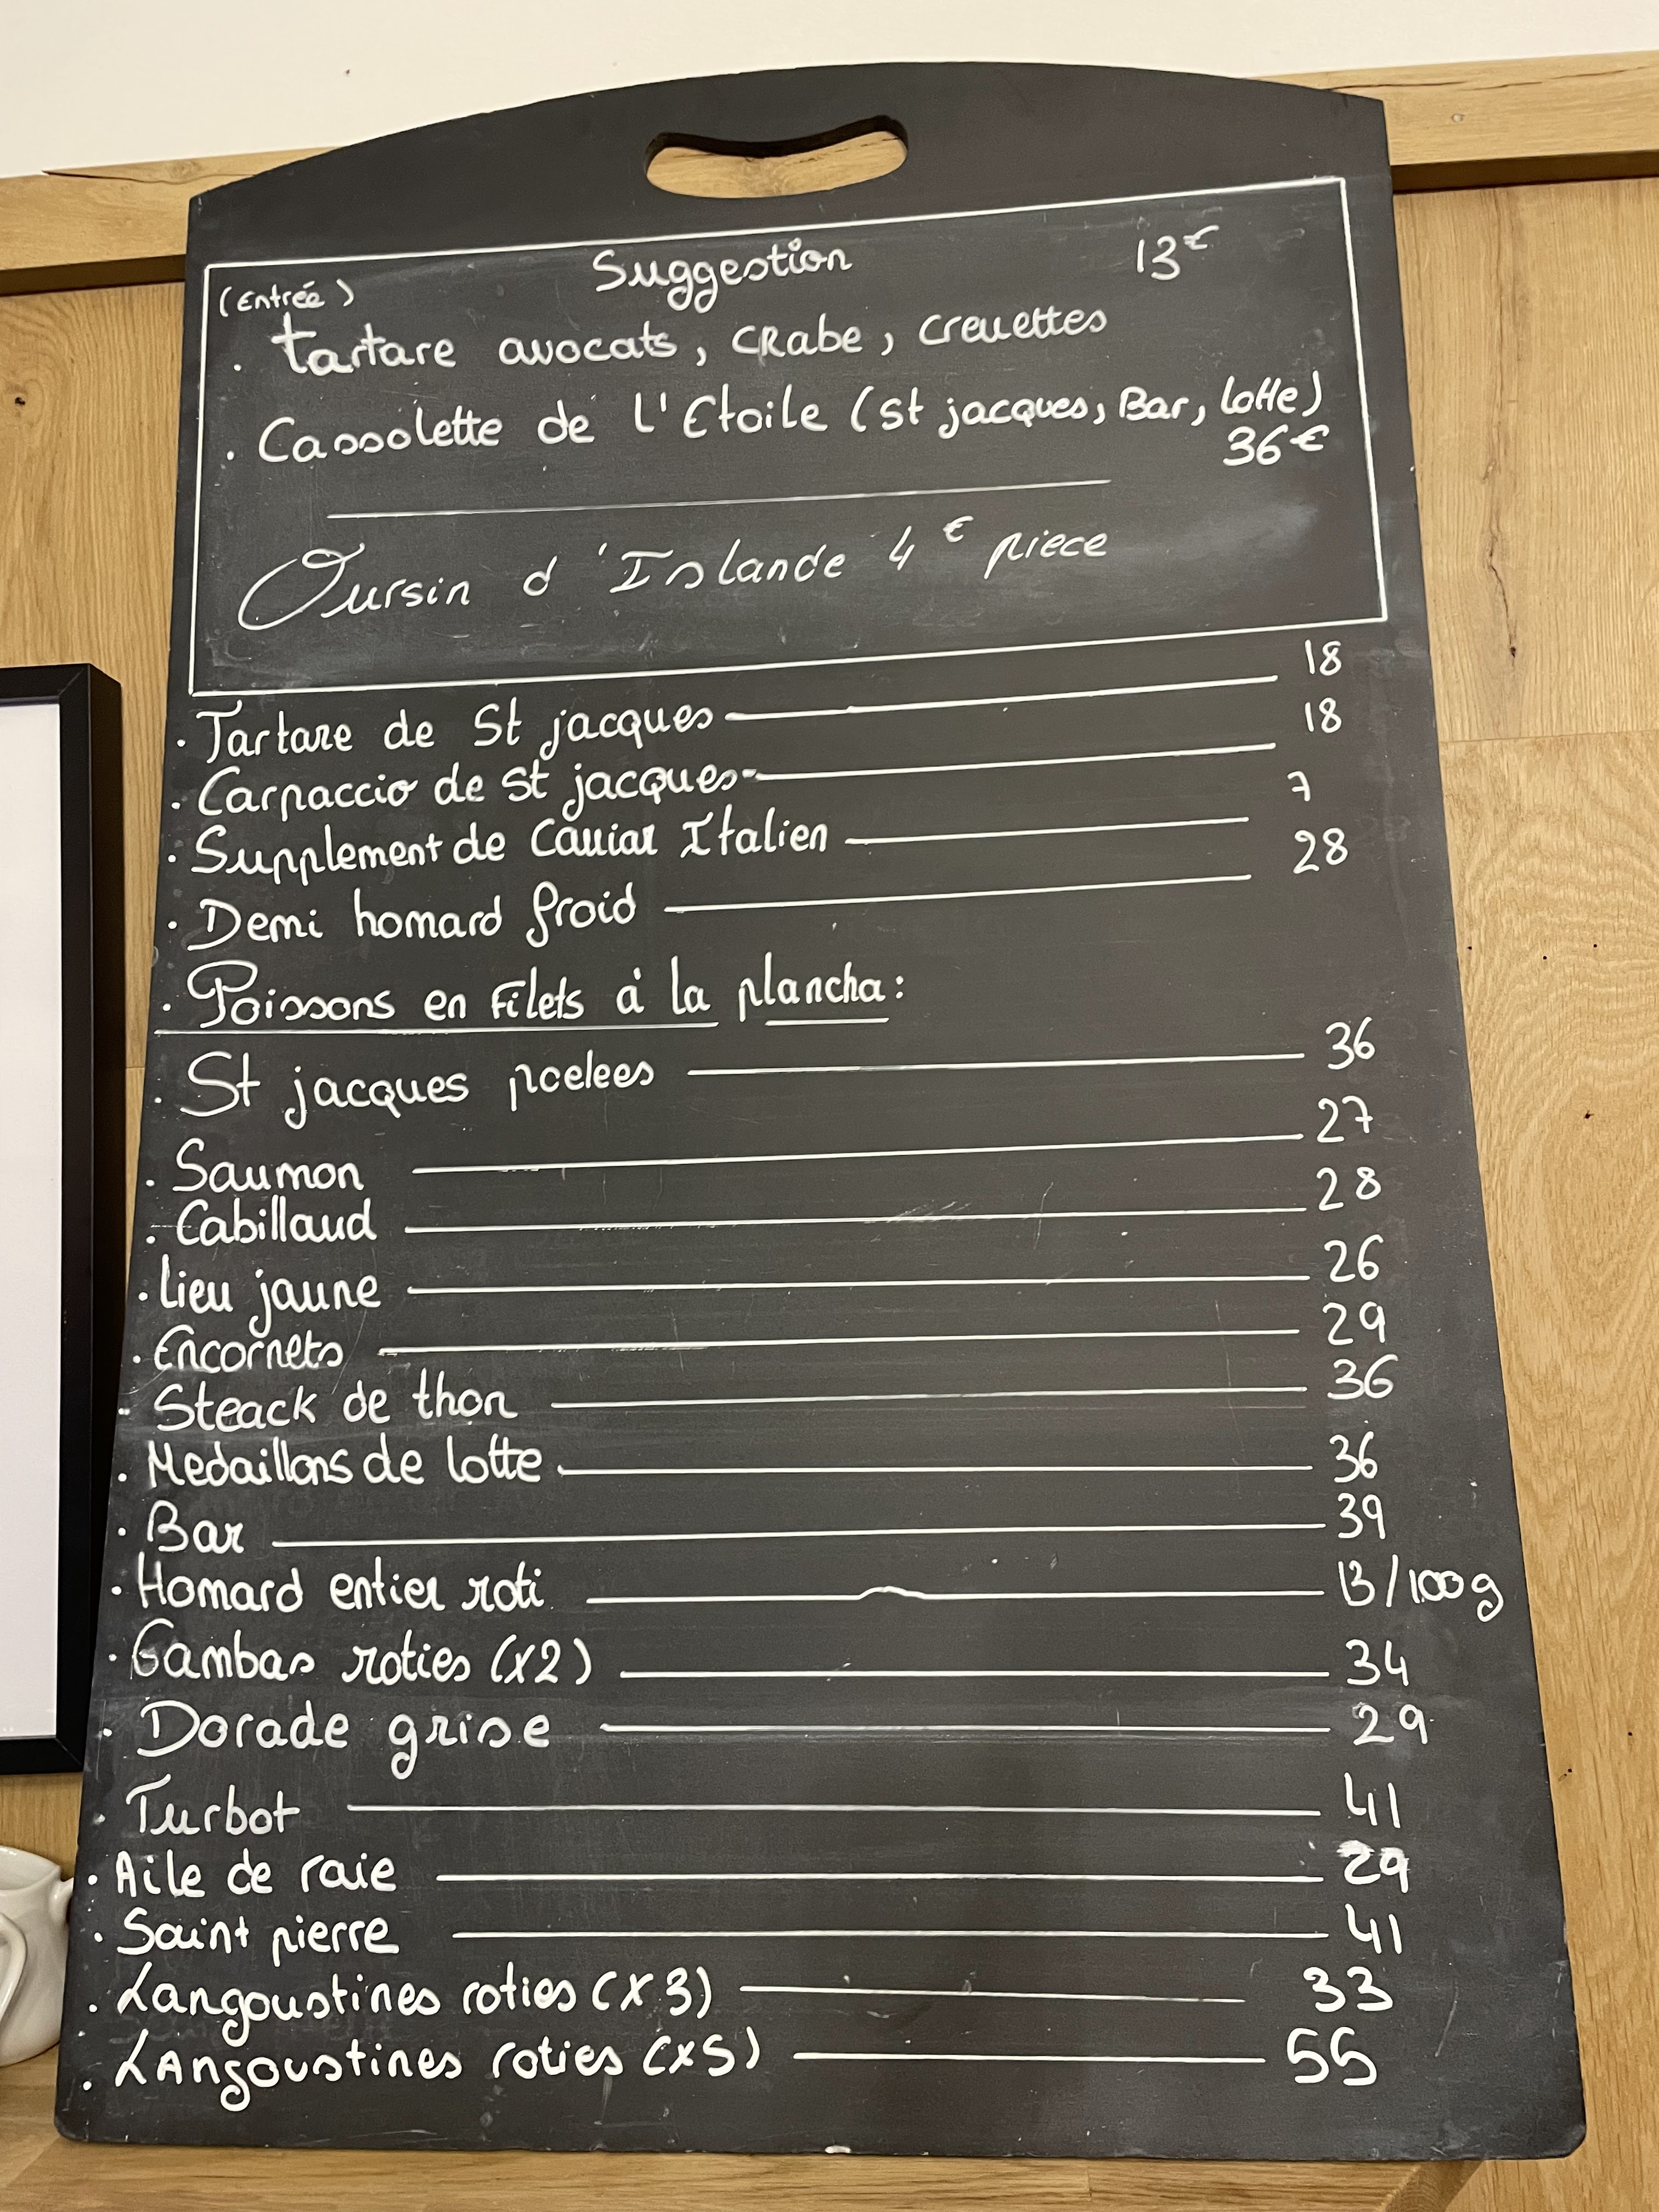 Suggestion 13€
(Entrée)
. tartare avocats, CRabe, Creuettes
. Cassolette de l'Etoile (St jacques, Bar, lotte)
36€
Oursin d'Islande 4€ piece
. Tartare de St jacques 18
. Carpaccio de St jacques 18
. Supplement de Caviar Italien 7
. Demi homard froid 28
. Poissons en Filets à la plancha:
. St jacques poelees 36
. Saumon 27
. Cabillaud 28
. Lieu jaune 26
. Encornets 29
. Steack de thon 36
. Medaillons de lotte 36
. Bar 39
. Homard entier roti 13/100g
. Gambas roties (x2) 34
. Dorade grise 29
. Turbot 41
. Aile de raie 29
. Saint pierre 41
. Langoustines roties (x3) 33
. LAngoustines roties (x5) 55